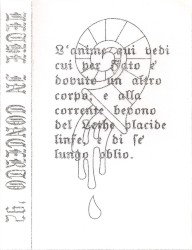 IN CONCERTO '92
L'anime qui vedi
cui per Fato è
dovuto un altro
corpo, e alla
corrente bevono
del Lethe placide
linfe, e di sè
lungo oblio.